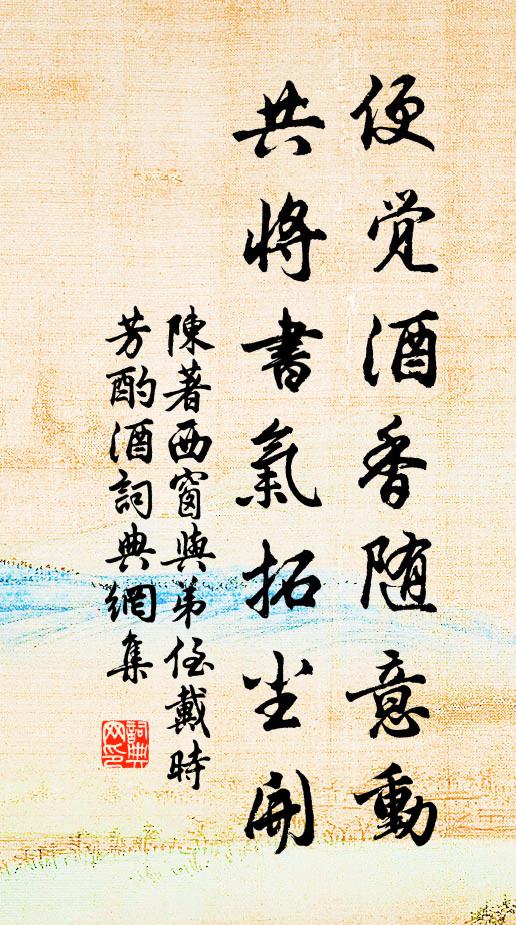 便觉酒香随意動
共將書氣拓尘開
陳著西窗與弟侄戴時
芳酌酒詞典網集
詞典网印